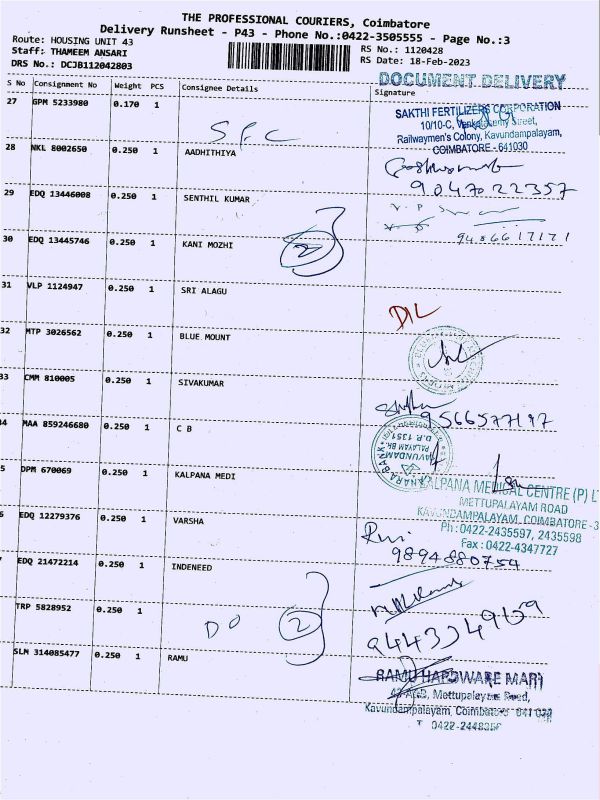 THE PROFESSIONAL COURIERS, Coimbatore
Delivery Runsheet - P43 - Phone No.:0422-3505555 - Page No.:3
Route: HOUSING UNIT 43
RS No.: 1120428
Staff: THAMEEM ANSARI
RS Date: 18-Feb-2023
DRS No.: DCJB112042803
DOCUMENT DELIVERY
S No Consignment No Weight PCS Consignee Details Signature
27 GPM 5233980 0.170 1
SFC
SAKTHI FERTILIZERS CORPORATION
10/10-C, Street,
Railwaymen's Colony, Kavundampalayam,
COIMBATORE - 641030
28 NKL 8002650 0.250 1 AADHITHIYA
9047022357
29 EDQ 13446008 0.250 1 SENTHIL KUMAR
9486617171
30 EDQ 13445746 0.250 1 KANI MOZHI
2
31 VLP 1124947 0.250 1 SRI ALAGU
D/L
32 MTP 3026562 0.250 1 BLUE MOUNT
33 CMM 810005 0.250 1 SIVAKUMAR
9566577197
34 MAA 859246680 0.250 1 C B
CANARA BANK
KAVUNDAM
PALAYAM BR.
D.P. 1351
5 DPM 670069 0.250 1 KALPANA MEDI
KALPANA MEDICAL CENTRE (P) LT
METTUPALAYAM ROAD
KAVUNDAMPALAYAM, COIMBATORE - 3
Ph: 0422-2435597, 2435598
Fax: 0422-4347727
6 EDQ 12279376 0.250 1 VARSHA
9894880754
7 EDQ 21472214 0.250 1 INDENEED
TRP 5828952 0.250 1
DO
2
9443349169
SLM 314085477 0.250 1 RAMU
RAMU HARDWARE MART
Mettupalayam Road,
Kavundampalayam, Coimbatore 641 030
T 0422-2448356